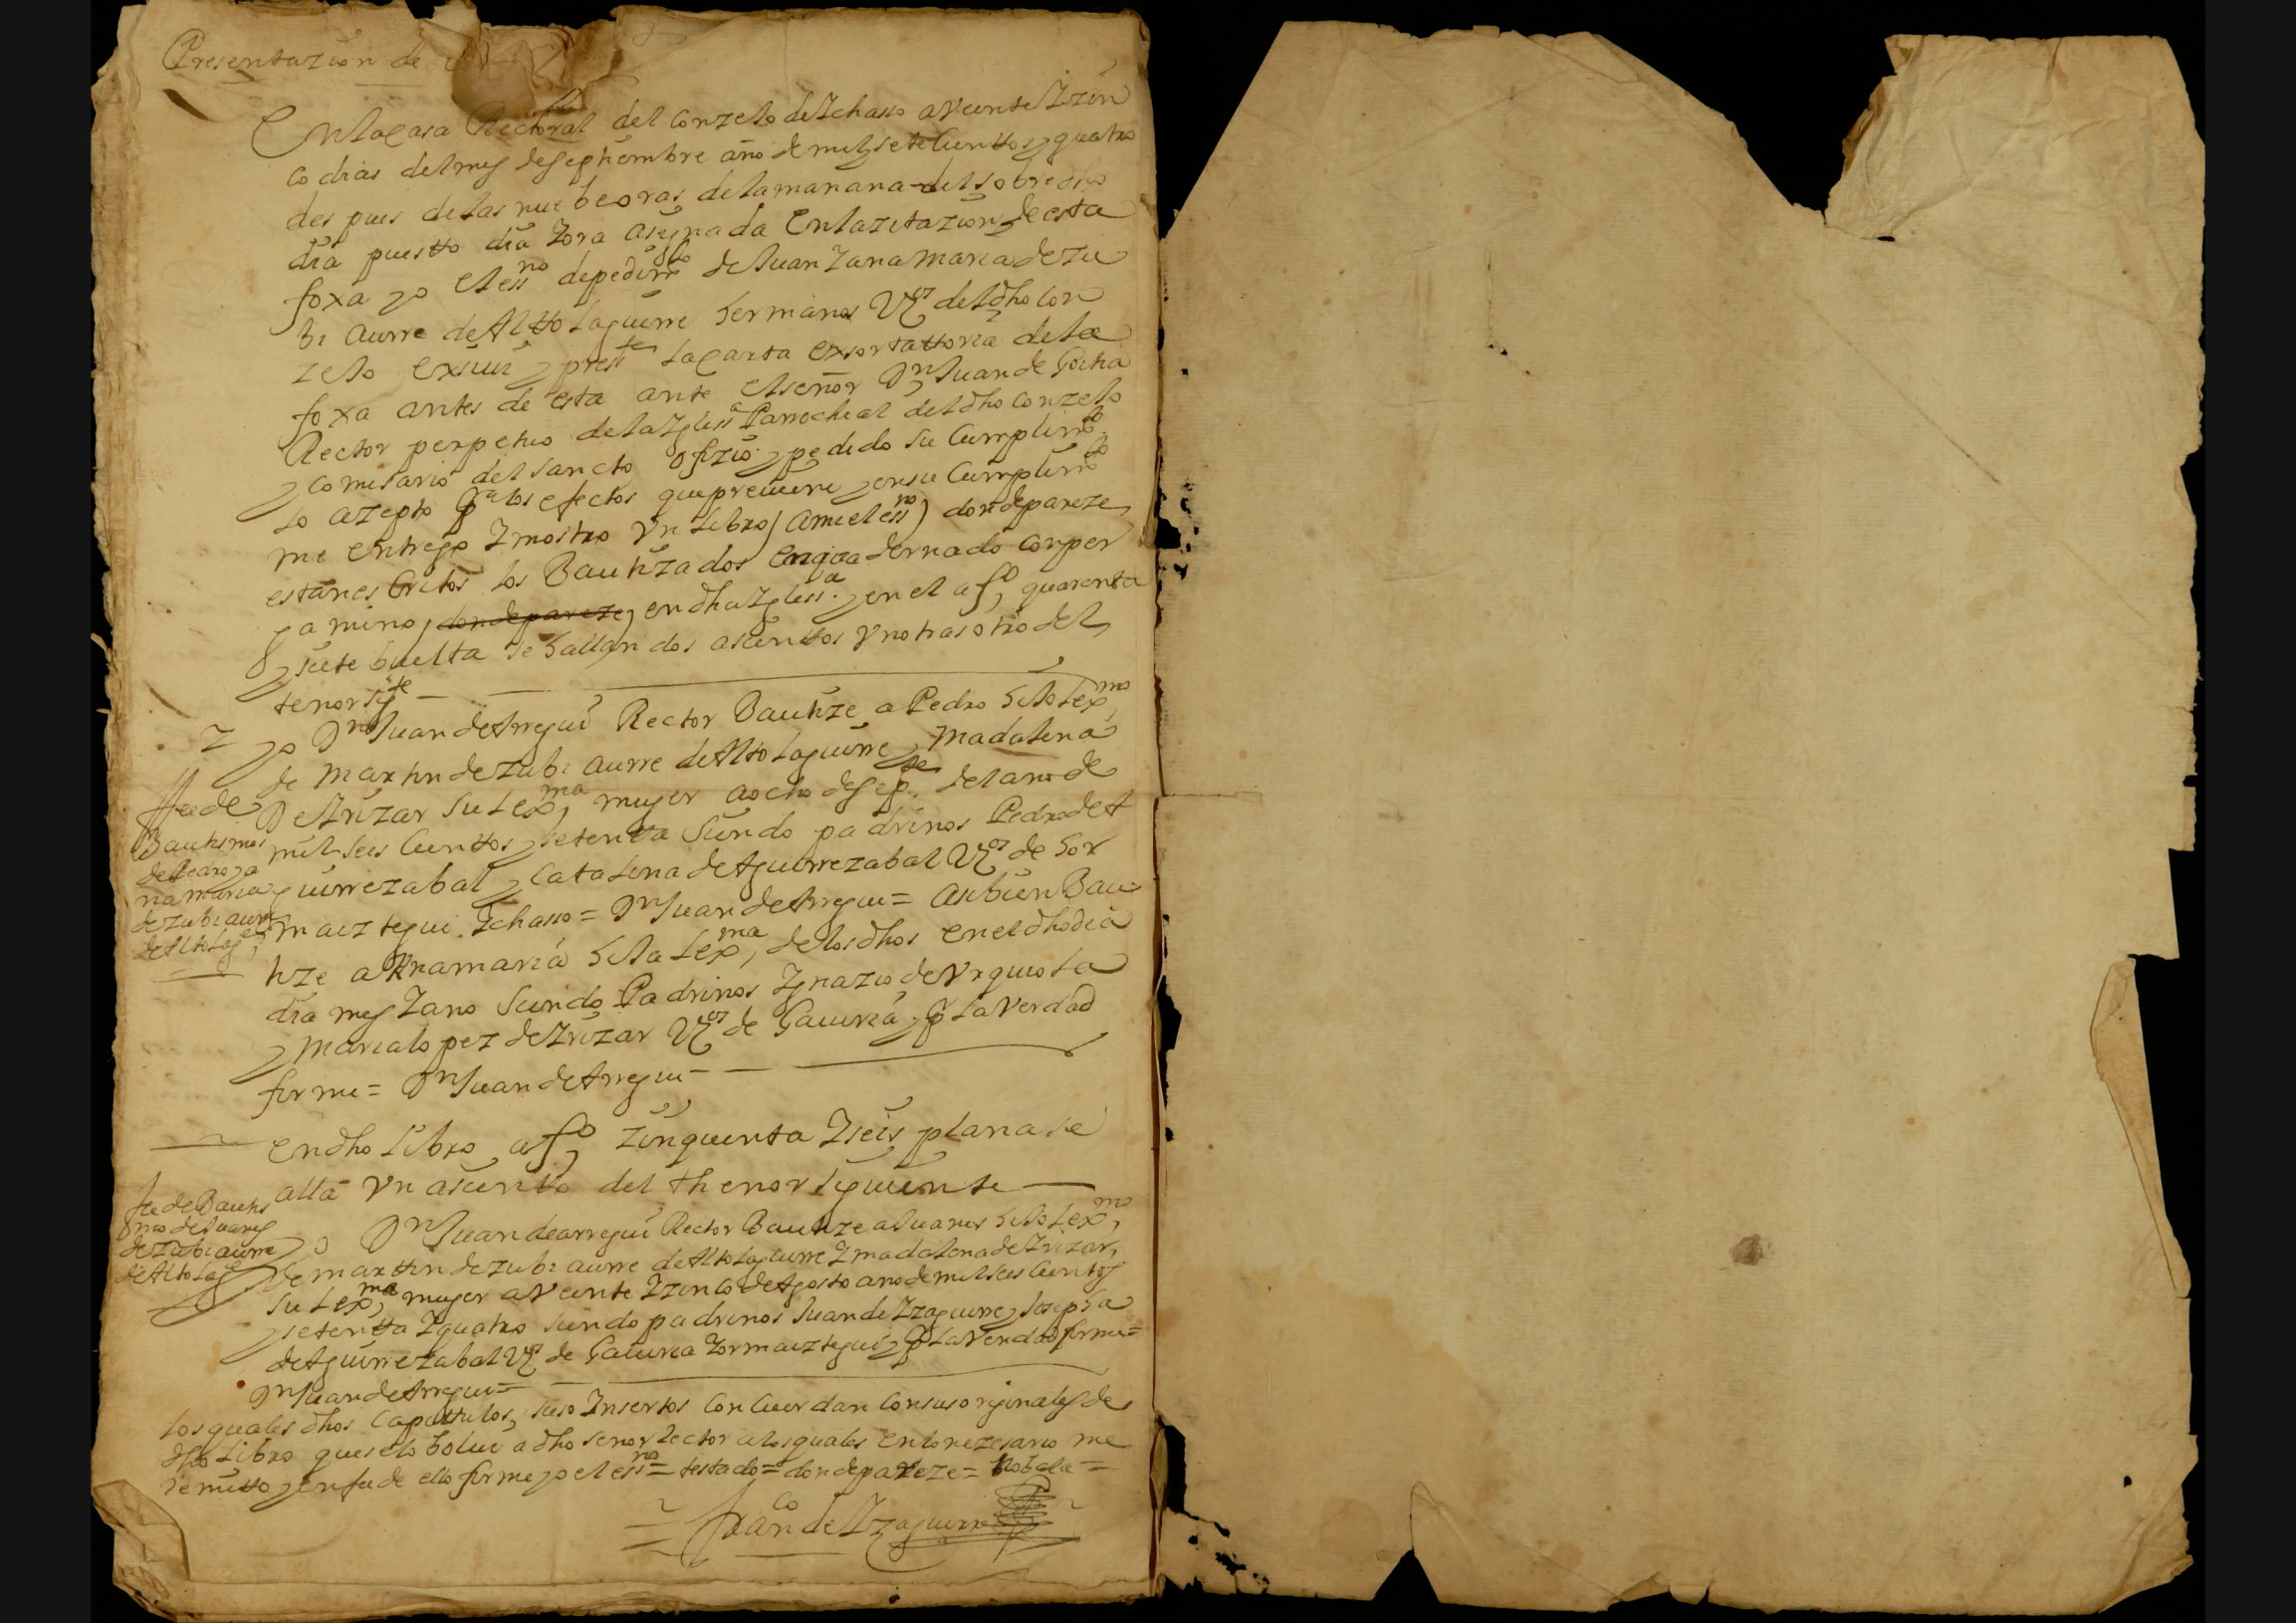 Presentazion de
En la Casa Rectoral del Conzejo de Ichasso a Veinte I zin
co dias del mes de Septiembre año de mil y sete Cienttos y quatro
des pues de las nuebe oras de la mañana del sobre dho
dia puestto dia I ora asignada En la zitazion de esta
foxa yo el essno de pedimto de Juan I ana Maria de Zu
bi aurre de Altto laguirre hermanos Vzos del dho Con
zejo Exsiui y presste la Carta Exsortattoria de la
foxa antes de esta ante el señor Dn Juan de Goitia
Rector perpetuo de la Iglessa Parrochial del dho Conzejo
y Comisario del Sancto ofizio y pedido su Cumplimto
lo azepto Pa los efectos que preuiene y en su Cumplimto
me entrego I mostro Vn Libro (a mi el essno) donde pareze
estan es Critos los Bautizados Enquadernado con per
gamino, donde pareze, en dha Iglessa y en el a fo, quarenta
y siete buelta se hallan dos asienttos Vno tras otro del
tenor sigte
yo Dn Juan de Arregui Rector Bautize a Pedro hijo Lexmo,
de Martin de Zubi aurre de Alto laguirre y Madalena
De Irizar su Lexma, muger a ocho de sepe del año de
mil seis Cienttos y setenta siendo padrinos Pedro de A
guirrezabal y Catalina de Aguirrezabal Vzos de hor
maiztegui Ichasso = Dn Juan de Arregui = asi bien Bau
tize a Ana maria hija Lexma, de los dhos en el dho dia
dia mes I año siendo Padrinos Ignazio de Vrquiola
y Maria lopez de Irizar Vzos de Gauiria y P la Verdad
firme = Dn Juan de Arregui
ffee de
Bautismos
de Pedro y a
na maria
de Zubi aurre
de Alto lagre,
En dho libro a fo, zinquenta I seis plana se
alla Vn asientto del thenor siguiente
fee de Bautis
mo de Juanes
de Zubi aurre
de Alto lage
yo Dn Juan de arregui Rector Bautize a Juanes hijo Lexmo,
de Marttin de Zubi aurre de Alto laguirre I madalena de Irizar,
su Lexma, muger a Veinte I zinco de Agosto año de mil seis Cientos
y setentta I quatro siendo padrinos Juan de Izaguirre y Josepha
de Aguirrezabal Vzos de Gauiria I ormaiztegui y P la Verdad firme =
Dn Juan de Arregui =
los quales dhos Capittulos, suso Insertos Con Cuerdan Con sus originales de
dho Libro que se lo bolui a dho señor Rector a los quales en lo nezesario me
remitto y en fee de ello firme yo el essno = testado = donde pareze = no bala =
Franco de Izaguirre